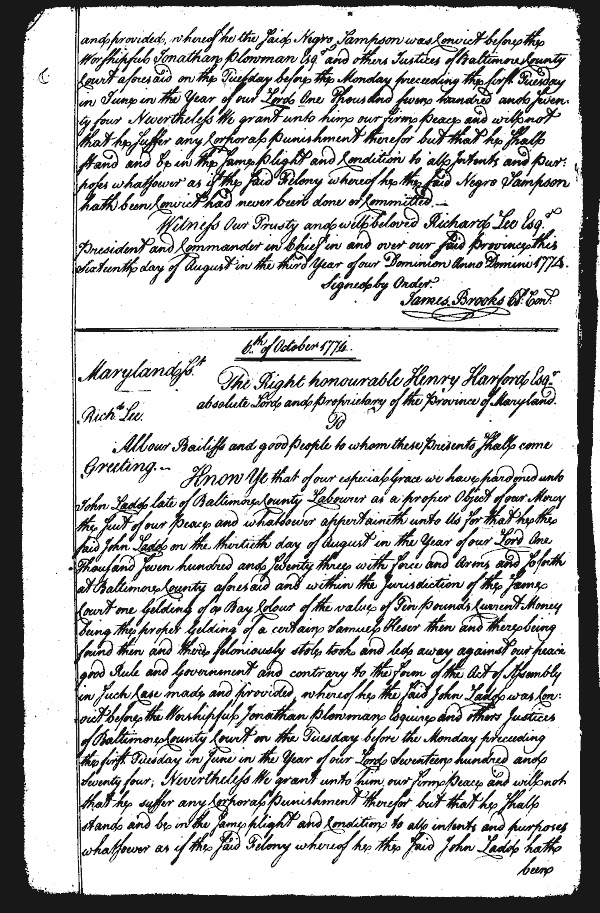 and provided, whereof he the said Negro Sampson was Convict before the
Worshipful Jonathan Plowman Esqr. and others Justices of Baltimore County
Court aforesaid on the Tuesday before the Monday preceeding the first Tuesday
in June in the Year of our Lord One Thousand seven hundred and seven-
ty four Nevertheless We grant unto him our firm Peace and will not
that he suffer any Corporal Punishment therefor but that he shall
stand and be in the same Plight and Condition to all Intents and Pur-
poses whatsoever as if the said Felony whereof he the said Negro Sampson
hath been Convict had never been done or Committed.—
Witness Our Trusty and well beloved Richard Lee Esqr.
President and Commander in Chief in and over our said Province this
Sixteenth day of August in the third Year of our Dominion Anno Domini 1774.
Signed by Order
James Brooks Cl. Con.
6th of October 1774.
Maryland ss.t
The Right honourable Henry Harford Esqr.
absolute Lord and Proprietary of the Province of Maryland.
Richd. Lee.
To
All our Bailiffs and good People to whom these Presents shall come
Greeting.— Know Ye that of our especial Grace we have pardoned unto
John Ladd late of Baltimore County Labourer as a proper Object of our Mercy
the Suit of our Peace and whatsoever appertaineth unto Us for that he the
said John Ladd on the thirtieth day of August in the Year of our Lord One
Thousand seven hundred and seventy three with force and Arms and so forth
at Baltimore County aforesaid and within the Jurisdiction of the same
Court one Gelding of a Bay Colour of the value of Ten Pounds Current Money
being the proper Gelding of a certain Samuel Heser then and there being
found then and there feloniously stole took and led away against our peace
good Rule and Government and contrary to the form of the Act of Assembly
in such Case made and provided, whereof he the said John Ladd was Con-
vict before the Worshipful Jonathan Plowman Esquire and others Justices
of Baltimore County Court on the Tuesday before the Monday preceeding
the first Tuesday in June in the Year of our Lord Seventeen hundred and
Seventy four; Nevertheless We grant unto him our firm Peace and will not
that he suffer any Corporal Punishment therefor but that he shall
stand and be in the same plight and Condition to all intents and purposes
whatsoever as if the said Felony whereof he the said John Ladd hath
been